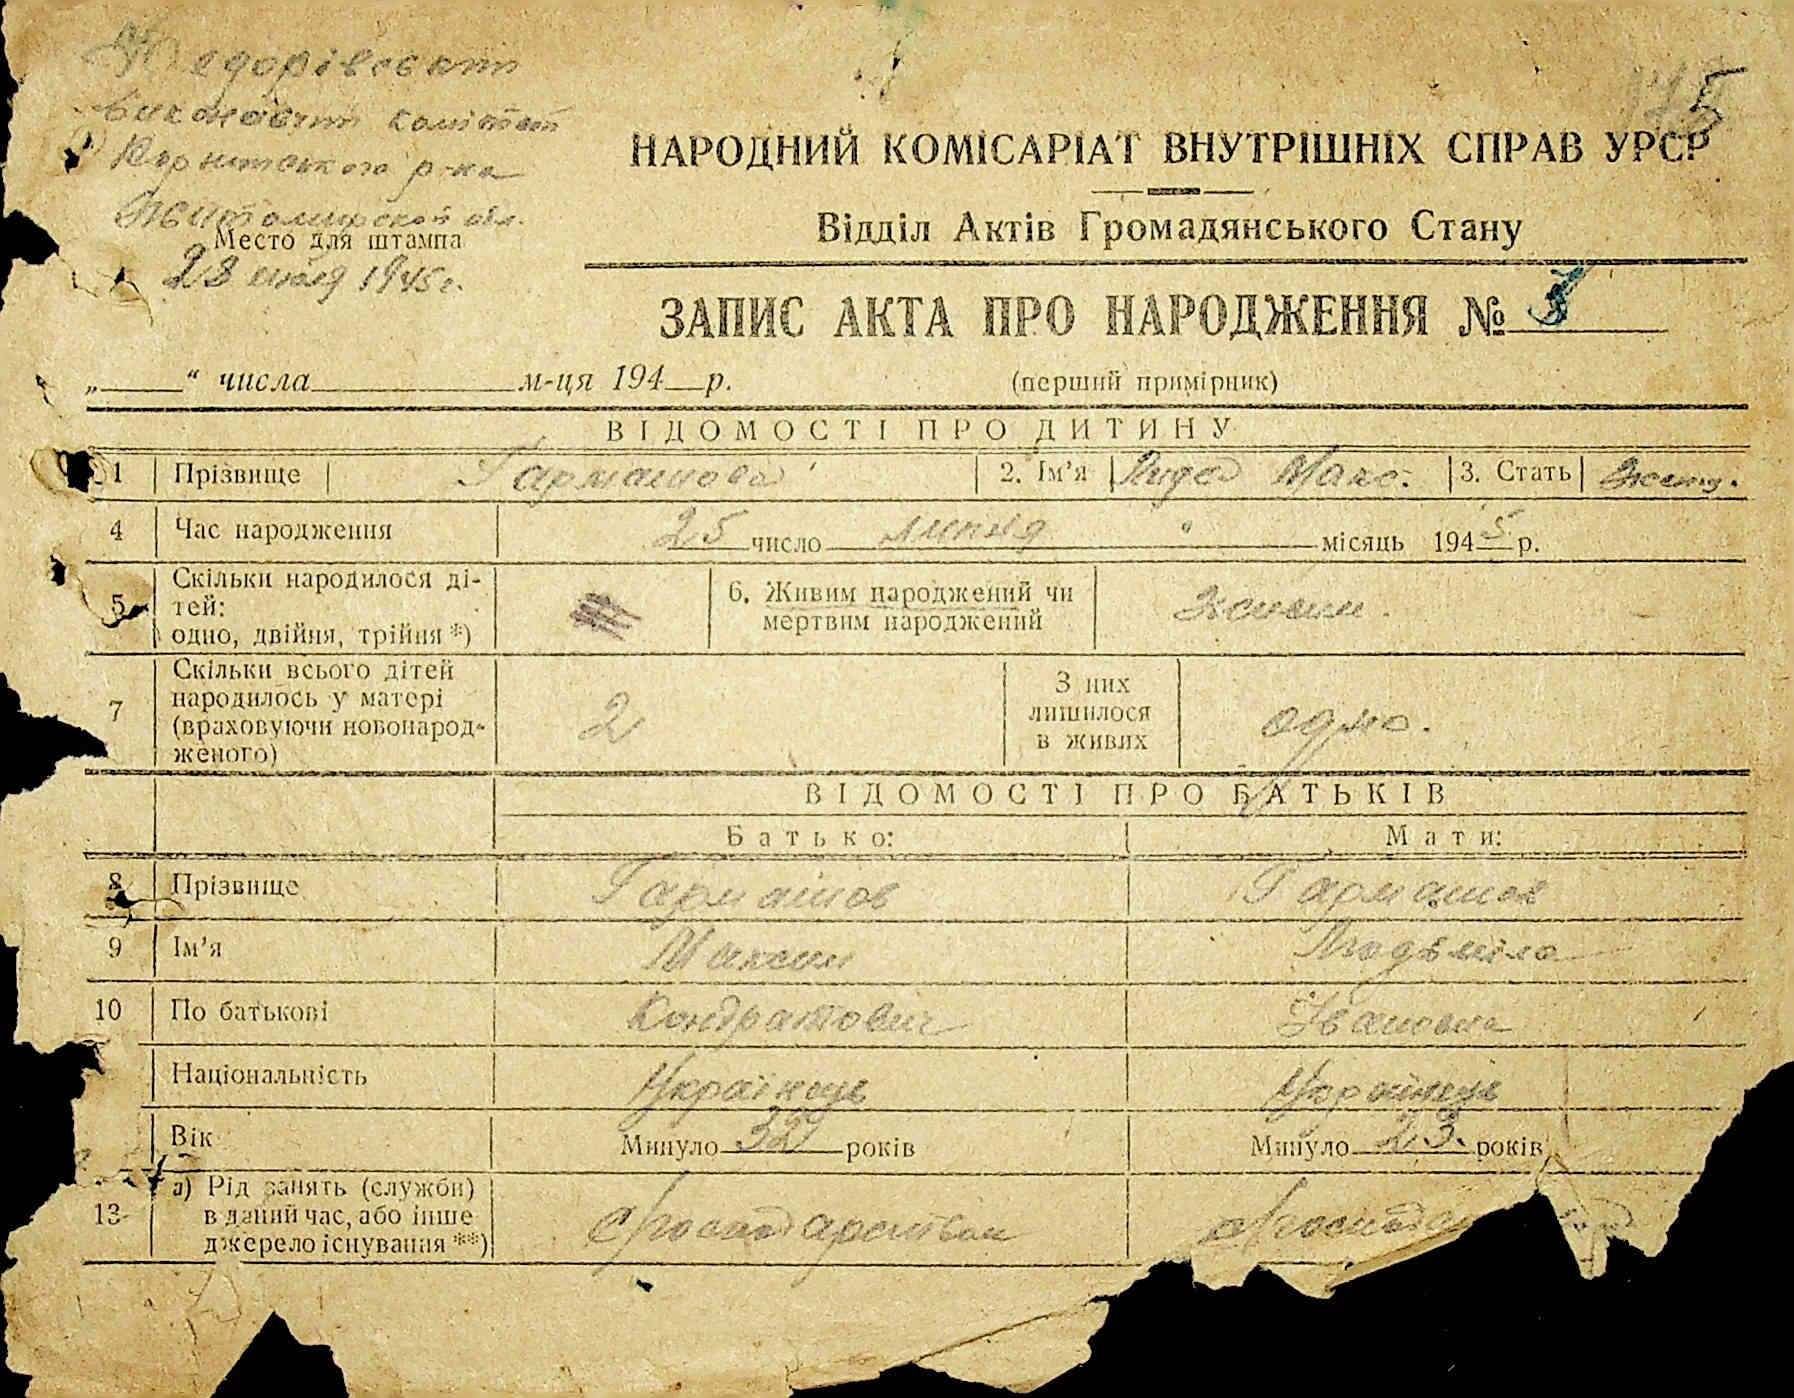 виконавчий комітет
р-на
Житомирской обл.
Место для штампа
28 июля 1945 г.
НАРОДНИЙ КОМІСАРІАТ ВНУТРІШНІХ СПРАВ УРСР
Відділ Актів Громадянського Стану
ЗАПИС АКТА ПРО НАРОДЖЕННЯ №
„ “ числа м-ця 194 р.
(перший примірник)
ВІДОМОСТІ ПРО ДИТИНУ
1 Прізвище Гармашова 2. Ім’я Лида Макс. 3. Стать женщ.
4 Час народження 25 число липня місяць 1945 р.
5 Скільки народилося ді-
тей:
одно, двійня, трійня *)
6. Живим народжений чи
мертвим народжений
живим.
7 Скільки всього дітей
народилось у матері
(враховуючи новонарод-
женого)
2
З них
лишилося
в живих
одно.
ВІДОМОСТІ ПРО БАТЬКІВ
Батько: Мати:
8 Прізвище Гармашов Гармашов
9 Ім’я Максим Людьміла
10 По батькові Кондратович Івановна
Національність Українець Українець
Вік Минуло 32 років Минуло 23. років
13 а) Рід занять (служби)
в даний час, або інше
джерело існування **)